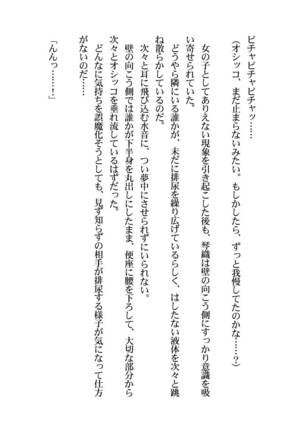 ピチャピチャピチャッ……
(オシッコ、まだ止まらないみたい。もしかしたら、ずっと我慢してたのかな……？)
女の子としてありえない現象を引き起こした後も、琴織は壁の向こう側にすっかり意識を吸
い寄せられていた。
どうやら隣にいる誰かが、未だに排尿を繰り広げているらしく、はしたない液体を次々と跳
ね散らかしているのだ。
次々と耳に飛び込む水音に、つい夢中にさせられずにいられない。
壁の向こう側では誰かが下半身を丸出しにしたまま、便座に腰を下ろして、大切な部分から
次々とオシッコを垂れ流しているはずだった。
どんなに気持ちを誤魔化そうとしても、見ず知らずの相手が排尿する様子が気になって仕方
がないのだ……
「んんっ……！」